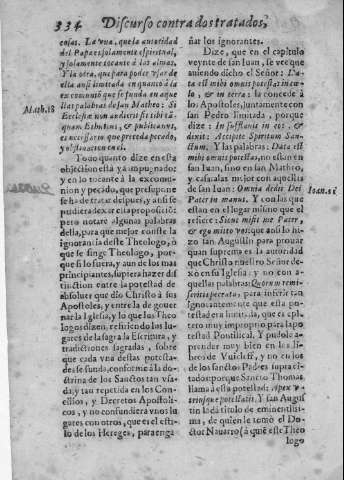 334 Discurso contra dos tratados,
cosas. La vna, que la autoridad
del Papa es solamente espiritual,
y solamente tocante à las almas.
Y la otra, que para poder vsar de
esta autoridad en quanto à la ex
comunió que se funda en aque
llas palabras de san Matheo: Si
Math.18
Ecclesiã non audierit sit tibi tã
quam Ethnicus, & publicanus,
es necessario que preceda pecado,
y obstinacion en el.
Todo quanto dize en esta
objeció està ya impugnado
y en lo tocante à la excomu
nion y pecado, que presupone
se ha de tratar despues, y assi se
pudiera dexar esta proposició:
pero notaré algunas palabras
della, para que mejor conste la
ignorancia deste Theologo, ò
que se finge Theologo, por-
que si lo fuera, y aun de los mas
principiantes, supiera hazer dis
tinction entre la potestad de
absoluer que dio Christo à sus
Apostoles, y entre la de gouer
nar la Iglesia, y lo que los Theo
logos dizen, refiriendo los lu-
gares de la sagrada Escritura, y
tradiciones sagradas, sobre
que cada vna destas potesta-
des se funda, conforme à la do-
ctrina de los Sanctos tan vsa-
da, y tan repetida en los Con-
cilios, y Decretos Apostoli-
cos, y no confundiera vnos lu
gares con otros, que es el esti-
lo de los Hereges, para enga
ñar los ignorantes.
Dize, que en el capitulo
veynte de san Iuan, se vee que
auiendo dicho el Señor: Da-
ta est mihi omnis potestas in cæ-
lo, & in terra: la concede à
los Apostoles, juntamente con
san Pedro limitada, porque
dize: Insufflauit in eos: &
dixit: Accipite Spiritum San-
ctum. Y las palabras: Data est
mihi omnis potestas, no estan en
san Iuan, sino en san Matheo,
y casaralas mejor con aquellas
de san Iuan: Omnia dedit Dei
Ioan. 21
Pater in manus. Y con las que
estan en el lugar mismo que el
refiere: Sicut misit me Pater,
& ego mitto vos: que assi lo hi-
zo san Augustin para prouar
quan suprema es la autoridad
que Christo nuestro Señor de-
xó en su Iglesia: y no con a-
quellas palabras: Quorum remi-
seritis peccata, para inferir tan
ignorantemente que esta po-
testad era limitada, que es ter-
mino muy improprio para la po
testad Pontifical. Y pudolo a-
prender muy bien en los li-
bros de Vuicleff, y no en los
de los sanctos Padres supra ci-
tados: porque Sancto Thomas
llama à esta potestad: Apex v-
triusque potestatis. Y san Augus
tin la dà titulo de eminentissi-
ma, de quien le tomò el Do-
ctor Nauarro (à quiẽ este Theo
logo